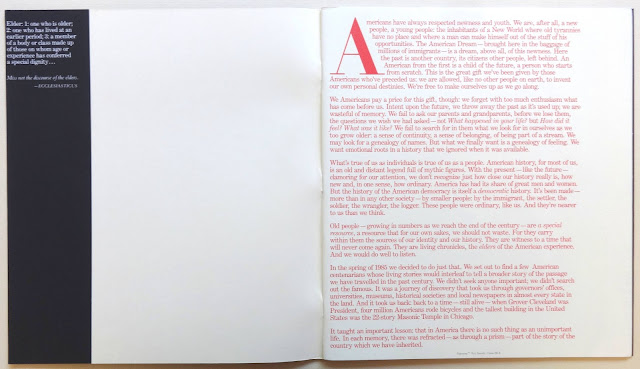 Elder: 1: one who is older;
2: one who has lived at an
earlier period; 3: a member
of a body or class made up
of those on whom age or
experience has conferred
a special dignity…
Miss not the discourse of the elders.
—ECCLESIASTICUS
Americans have always respected newness and youth. We are, after all, a new
people, a young people: the inhabitants of a New World where old tyrannies
have no place and where a man can make himself out of the stuff of his
opportunities. The American Dream—brought here in the baggage of
millions of immigrants—is a dream, above all, of this newness. Here
the past is another country, its citizens other people, left behind. An
American from the first is a child of the future, a person who starts
from scratch. This is the great gift we've been given by those
Americans who've preceded us: we are allowed, like no other people on earth, to invent
our own personal destinies. We're free to make ourselves up as we go along.
We Americans pay a price for this gift, though: we forget with too much enthusiasm what
has come before us. Intent upon the future, we throw away the past as it's used up; we are
wasteful of memory. We fail to ask our parents and grandparents, before we lose them,
the questions we wish we had asked—not What happened in your life? but How did it
feel? What was it like? We fail to search for in them what we look for in ourselves as we
too grow older: a sense of continuity, a sense of belonging, of being part of a stream. We
may look for a genealogy of names. But what we finally want is a genealogy of feeling. We
want emotional roots in a history that we ignored when it was available.
What's true of us as individuals is true of us as a people. American history, for most of us,
is an old and distant legend full of mythic figures. With the present—like the future—
clamoring for our attention, we don't recognize just how close our history really is, how
new and, in one sense, how ordinary. America has had its share of great men and women.
But the history of the American democracy is itself a democratic history. It's been made—
more than in any other society—by smaller people: by the immigrant, the settler, the
soldier, the wrangler, the logger. These people were ordinary, like us. And they're nearer
to us than we think.
Old people—growing in numbers as we reach the end of the century—are a special
resource, a resource that for our own sakes, we should not waste. For they carry
within them the sources of our identity and our history. They are witness to a time that
will never come again. They are living chronicles, the elders of the American experience.
And we would do well to listen.
In the spring of 1985 we decided to do just that. We set out to find a few American
centenarians whose living stories would interleaf to tell a broader story of the passage
we have travelled in the past century. We didn't seek anyone important; we didn't search
out the famous. It was a journey of discovery that took us through governors' offices,
universities, museums, historical societies and local newspapers in almost every state in
the land. And it took us back: back to a time—still alive—when Grover Cleveland was
President, four million Americans rode bicycles and the tallest building in the United
States was the 22-story Masonic Temple in Chicago.
It taught an important lesson: that in America there is no such thing as an unimportant
life. In each memory, there was refracted—as through a prism—part of the story of the
country which we have inherited.